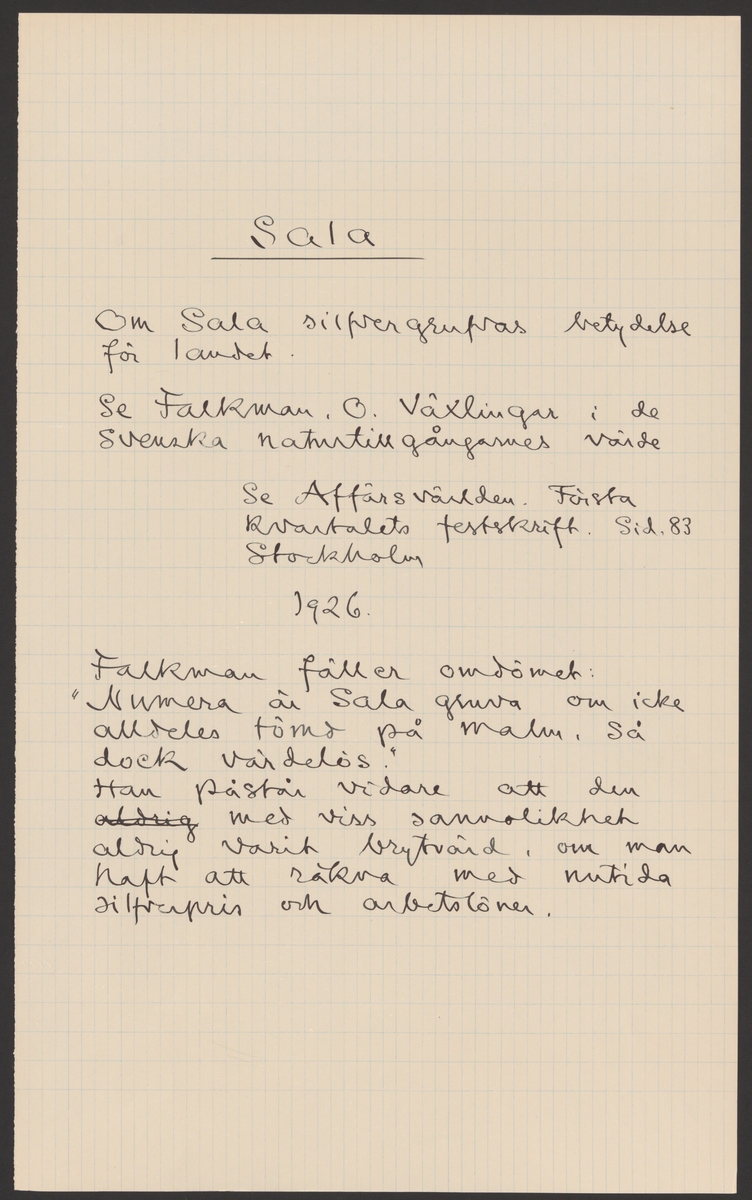 Sala
Om Sala silfvergrufvas betydelse
för landet.
Se Falkman, O. Växlingar i de
svenska naturtillgångarnes värde
Se Affärsvärlden. Första
kvartalets festskrift. Sid. 83
Stockholm
1926.
Falkman fäller omdömet:
"Numera är Sala gruva om icke
alldeles tömd på malm, så
dock värdelös."
Han påstår vidare att den
aldrig med viss sannolikhet
aldrig varit brytvärd, om man
haft att räkna med nutida
silfverpris och arbetslöner.